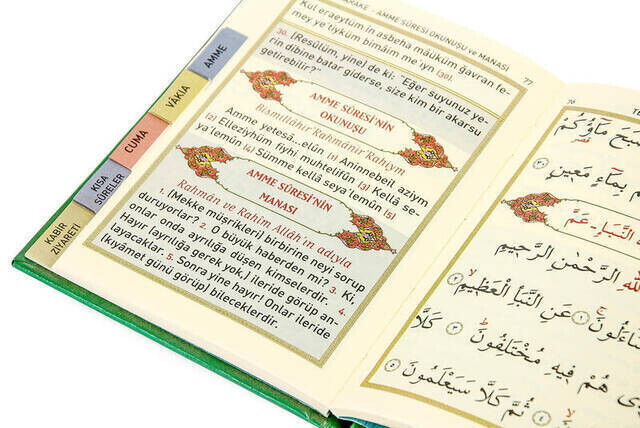 ARAKE - AMME SÛRESİ OKUNUŞU ve MANASI
Kul eraeytüm in asbeha mâüküm ğavran fe-
mey ye'tiyküm bimâim me'ıyn (30).
30. (Resûlüm, yine) de ki: "Eğer suyunuz ye-
rin dibine batar giderse, size kim bir akarsu
getirebilir?"
AMME SÛRESİ'NİN
OKUNUŞU
Bismillâhir'Rahmânir'Rahıym
Amme yetesâ..elûn (1) Aninnebeil, aziym
(2) Elleziyhüm fiyhi muhtelifûn (3) Kellâ se-
ya'lemûn (4) Sümme kellâ seya'lemûn (5)
AMME SÛRESİ'NİN
MANASI
Rahman ve Rahim Allâh'ın adıyla
1. (Mekke müşrikleri) birbirine neyi sorup
duruyorlar? 2. O büyük haberden mi? 3. Ki,
onlar onda ayrılığa düşen kimselerdir. 4.
Hayır (ayrılığa gerek yok,) ileride görüp an-
layacaklar. 5. Sonra yine hayır! Onlar ileride
(kıyâmet günü görüp) bileceklerdir.
77
AMME
VÂKIA
CUMA
KISA
SÛRELER
KABİR
ZİYARETİ
76
أَصْبَحَ مَاؤُكُمْ
بِمَاءٍ مَعِينٍ
النَّبَإِ - عَمَّ
اللهِ الرَّحْمٰنِ الرَّحِيمِ
عَنِ النَّبَإِ الْعَظِيمِ
هُمْ فِيهِ مُخْتَلِفُونَ ٣ كَلَّا
ثُمَّ كَلَّا سَيَعْلَمُونَ ٥